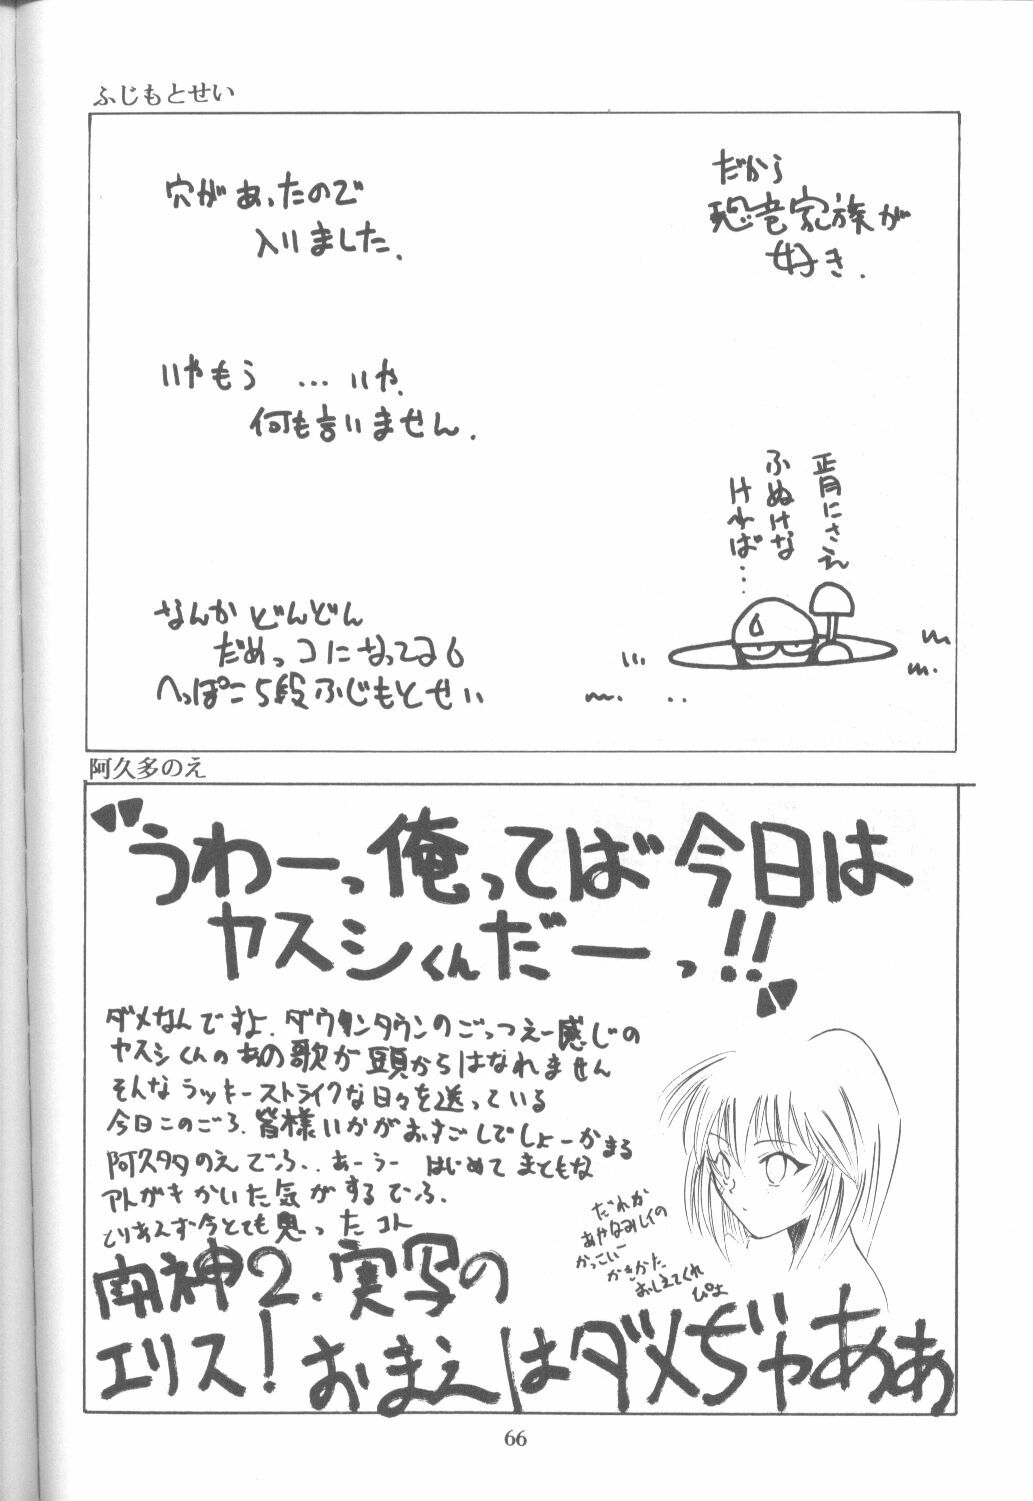 ふじもとせい
だから
恐竜家族が
好き.
穴があったので
入りました.
いやもう …いや.
何も言いません.
正月にさえ
ふぬけな
ければ…
なんかどんどん
だめっコになってる
へっぽこ5段ふじもとせい
阿久多のえ
"うわーっ俺ってば今日は
ヤスシくんだーっ!!"
ダメなんですよ.ダウンタウンのごっつえー感じの
ヤスシくんのあの歌が頭からはなれません
そんなラッキーストライクな日々を送っている
今日このごろ.皆様いかがおすごしでしょーかまる
阿久多のえでふ..あーうー はじめてまともな
アトがキかいた気がするでふ.
とりあえず今とても思ったコト
南神2.実写の
エリス!おまえはダメぢゃああ
だれか
あやなみレイの
かっこいー
かきかた
おしえてくれ
ぴょ
66